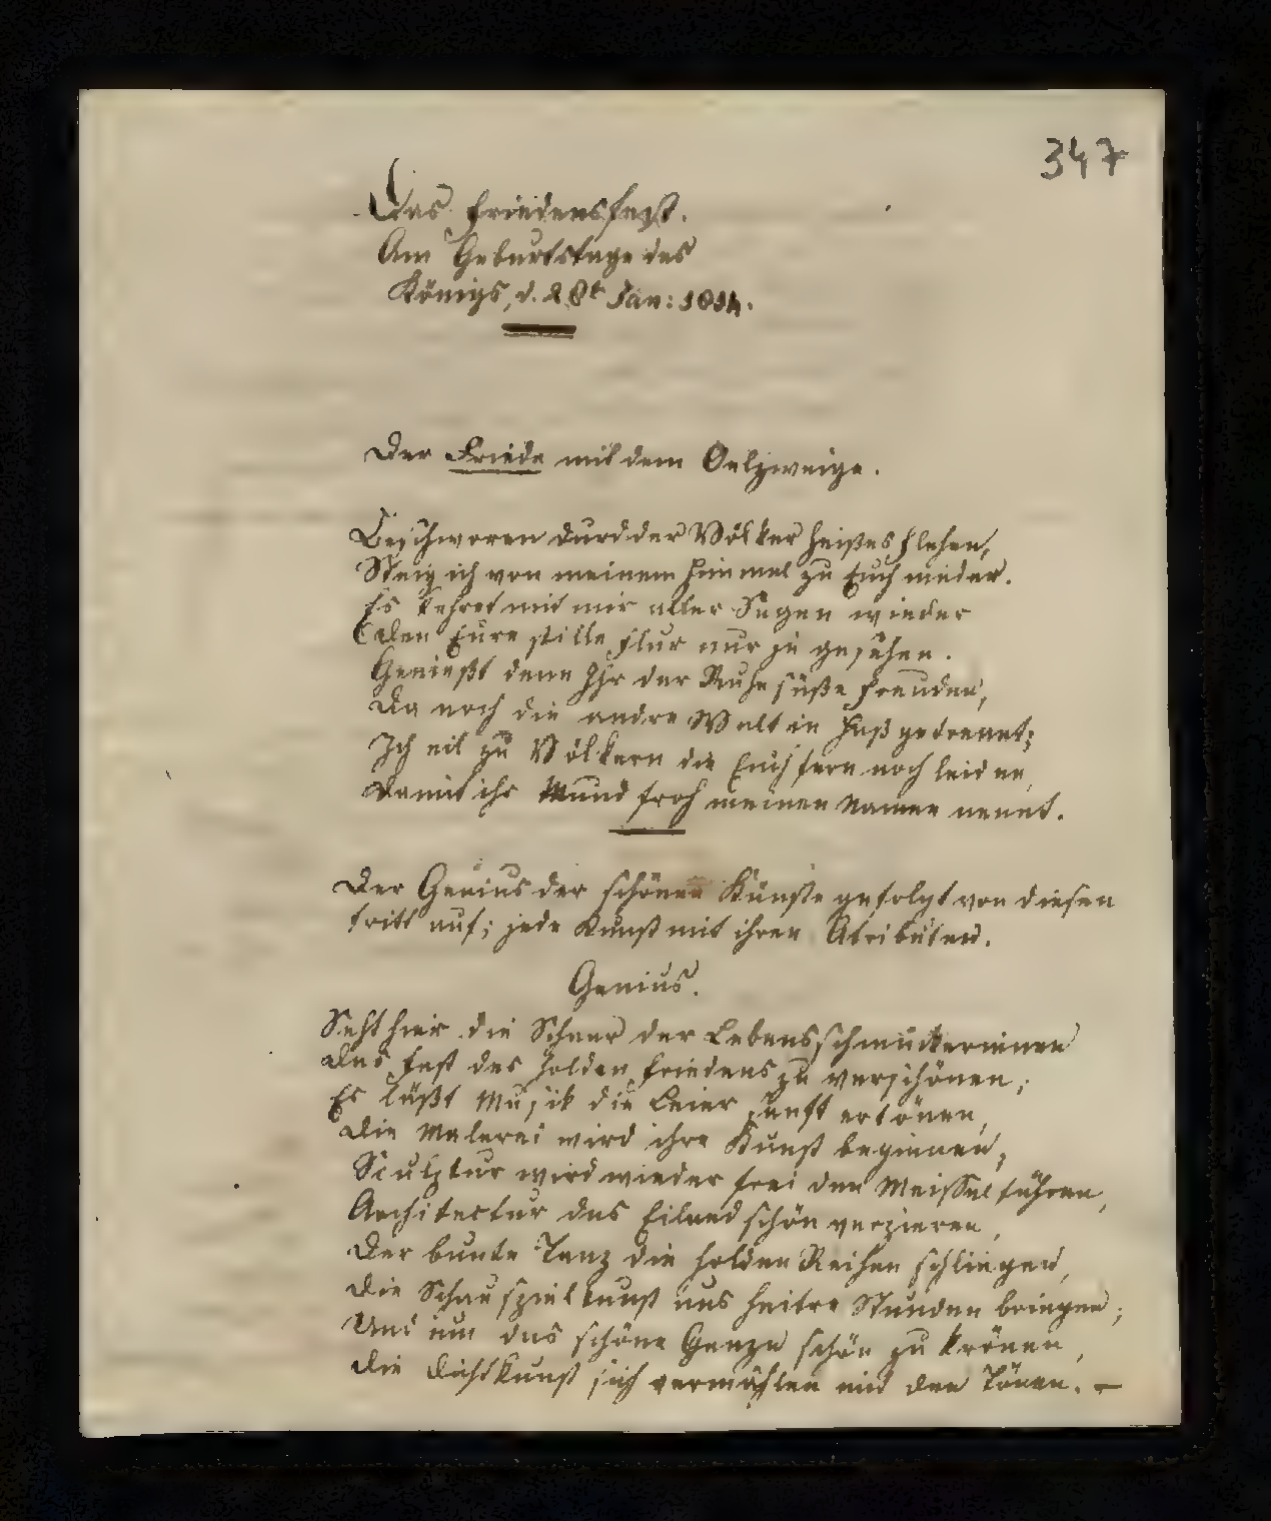 347
Das Friedensfest.
Am Geburtstage des
Königs, d. 28t Jan: 1814.
Der Friede mit dem Oelzweige.
Beschworen durch der Völker heißes Flehen,
Steig ich von meinem Himmel zu Euch nieder.
Es kehret mit mir aller Segen wieder
Den Eure stille Flur nur je gesehen.
Genießt denn Ihr der Ruhe süße Freuden,
Da noch die andre Welt in Haß getrennt;
Ich eil zu Völkern die Euch fern noch leiden,
Damit ihr Mund froh meinen Namen nennt.
Der Genius der schönen Künste gefolgt von diesen
tritt auf; jede Kunst mit ihren Atributen.
Genius.
Seht hier die Schaar der Lebensschmückerinnen
Das Fest des holden Friedens zu verschönen;
Es läßt Musik die Leier sanft ertönen,
Die Malerei wird ihre Kunst beginnen,
Sculptur wird wieder frei den Meissel führen,
Architectur das Eiland schön verzieren,
Der bunte Tanz die holden Reihen schlingen,
Die Schauspielkunst uns heitre Stunden bringen;
Und um das schöne Ganze schön zu krönen,
Die Dichtkunst sich vermählen mit den Tönen. –